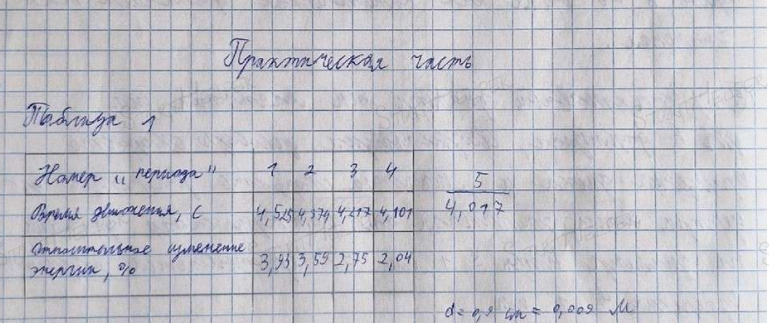 Практическая часть
Таблица 1
Номер „периода" 1 2 3 4 5
Время движения, с 4,525 4,379 4,217 4,101 4,017
Относительное изменение
энергии, % 3,95 3,59 2,75 2,04
d = 0,9 см = 0,009 м